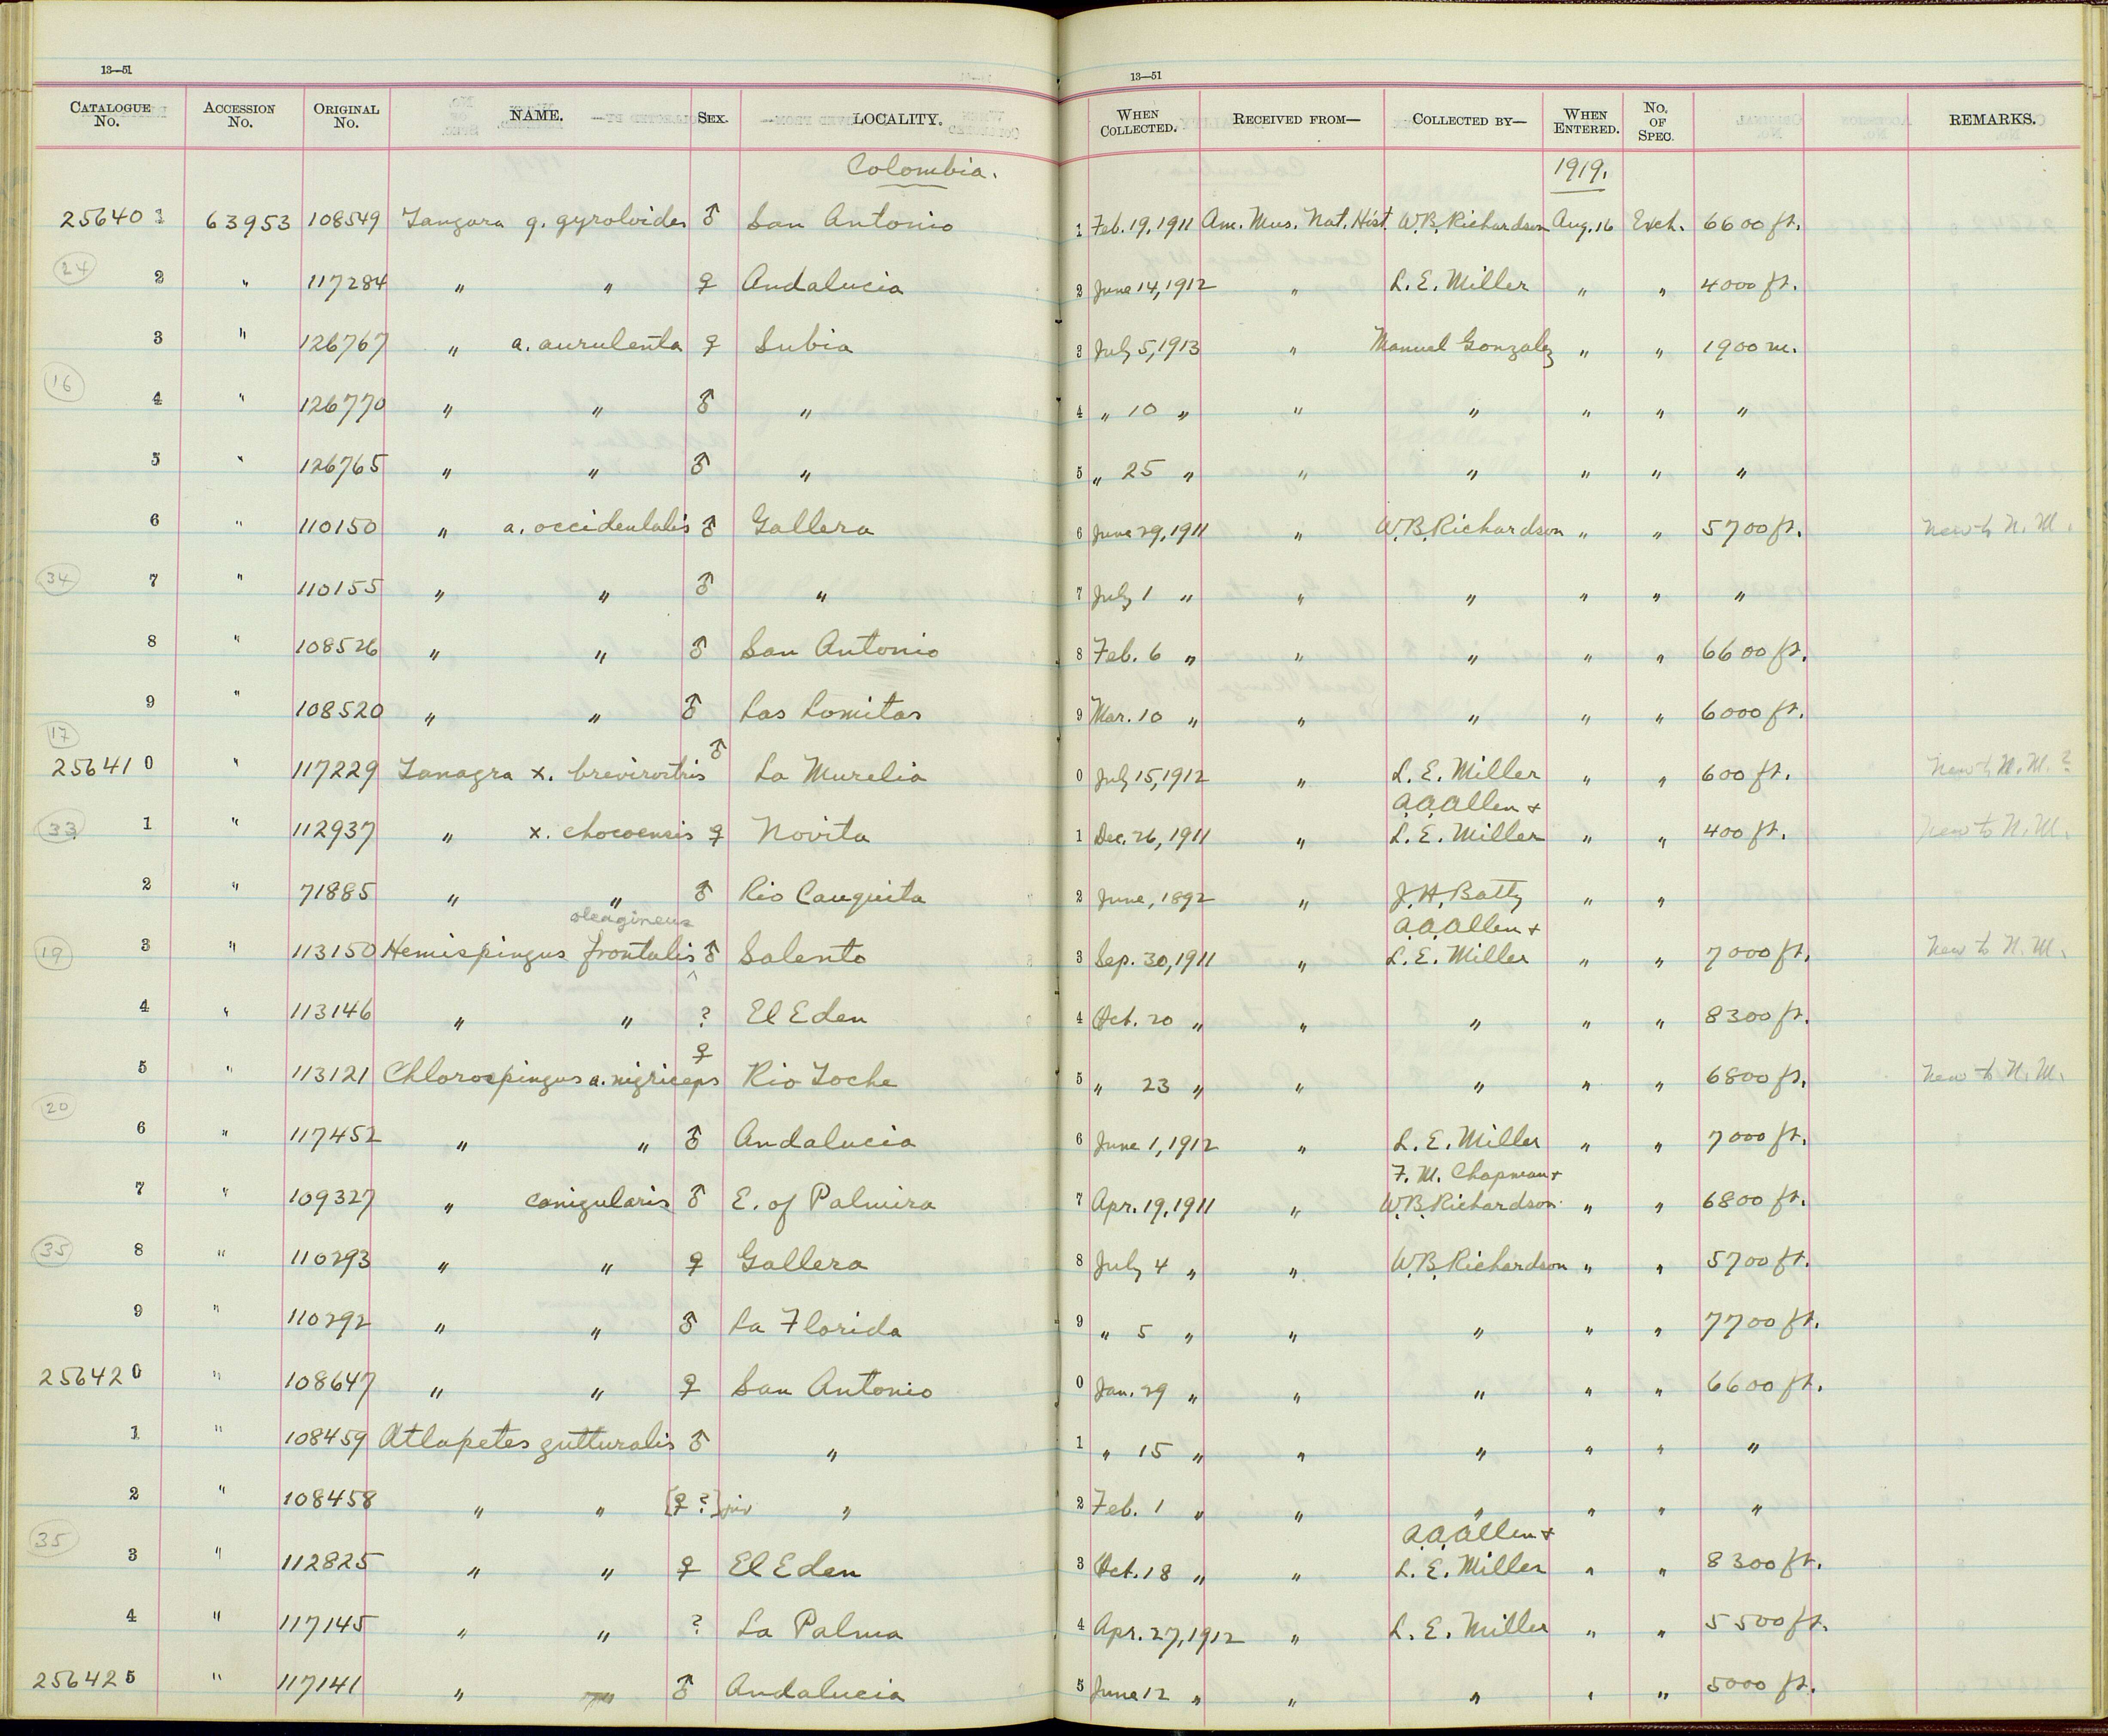 13—51
13—51
CATALOGUE No. ACCESSION No. ORIGINAL No. NAME. SEX. LOCALITY. WHEN COLLECTED. RECEIVED FROM— COLLECTED BY— WHEN ENTERED. No. OF SPEC. REMARKS.
Colombia. 1919.
256401 63953 108549 Tangara g. gyroloides ♂ San Antonio 1 Feb. 19, 1911 Am. Mus. Nat. Hist. W.B. Richardson Aug. 16 Exch. 6600 ft.
24
2 " 117284 " " ♀ Andalucia 2 June 14, 1912 " L. E. Miller " " 4000 ft.
3 " 126767 " a. aurulenta ♀ Subia 3 July 5, 1913 " Manuel Gonzalez " " 1900 m.
16
4 " 126770 " " ♂ " 4 " 10 " " " " " "
5 " 126765 " " ♂ " 5 " 25 " " " " " "
6 " 110150 " a. occidentalis ♂ Gallera 6 June 29, 1911 " W.B. Richardson " " 5700 ft. New to N. M.
34
7 " 110155 " " ♂ " 7 July 1 " " " " " "
8 " 108526 " " ♂ San Antonio 8 Feb. 6 " " " " " 6600 ft.
9 " 108520 " " ♂ Las Lomitas 9 Mar. 10 " " " " " 6000 ft.
17
256410 " 117229 Tanagra x. brevirostris ♂ La Murelia 0 July 15, 1912 " L. E. Miller " " 600 ft. New to N. M.?
A.A. Allen +
33
1 " 112937 " x. chocoensis ♀ Novita 1 Dec. 26, 1911 " L. E. Miller " " 400 ft. New to N. M.
2 " 71885 " " ♂ Rio Cauquita 2 June, 1892 " J. H. Batty " "
oleagineus A.A. Allen +
19
3 " 113150 Hemispingus frontalis ♂ Salento 3 Sep. 30, 1911 " L. E. Miller " " 7000 ft. New to N. M.
4 " 113146 " " ? El Eden 4 Oct. 20 " " " " " 8300 ft.
5 " 113121 Chlorospingus a. nigriceps ♀ Rio Toche 5 " 23 " " " " " 6800 ft. New to N. M.
20
6 " 117452 " " ♂ Andalucia 6 June 1, 1912 " L. E. Miller " " 7000 ft.
F. M. Chapman +
7 " 109327 " canigularis ♂ E. of Palmira 7 Apr. 19, 1911 " W.B. Richardson " " 6800 ft.
35
8 " 110293 " " ♀ Gallera 8 July 4 " " W.B. Richardson " " 5700 ft.
9 " 110292 " " ♂ La Florida 9 " 5 " " " " " 7700 ft.
256420 " 108647 " " ♀ San Antonio 0 Jan. 29 " " " " " 6600 ft.
1 " 108459 Atlapetes gutturalis ♂ " 1 " 15 " " " " " "
2 " 108458 " " [♀ ?] juv " 2 Feb. 1 " " " " " "
A.A. Allen +
35
3 " 112825 " " ♀ El Eden 3 Oct. 18 " " L. E. Miller " " 8300 ft.
4 " 117145 " " ? La Palma 4 Apr. 27, 1912 " L. E. Miller " " 5500 ft.
256425 " 117141 " " ♂ Andalucia 5 June 12 " " " " " 5000 ft.